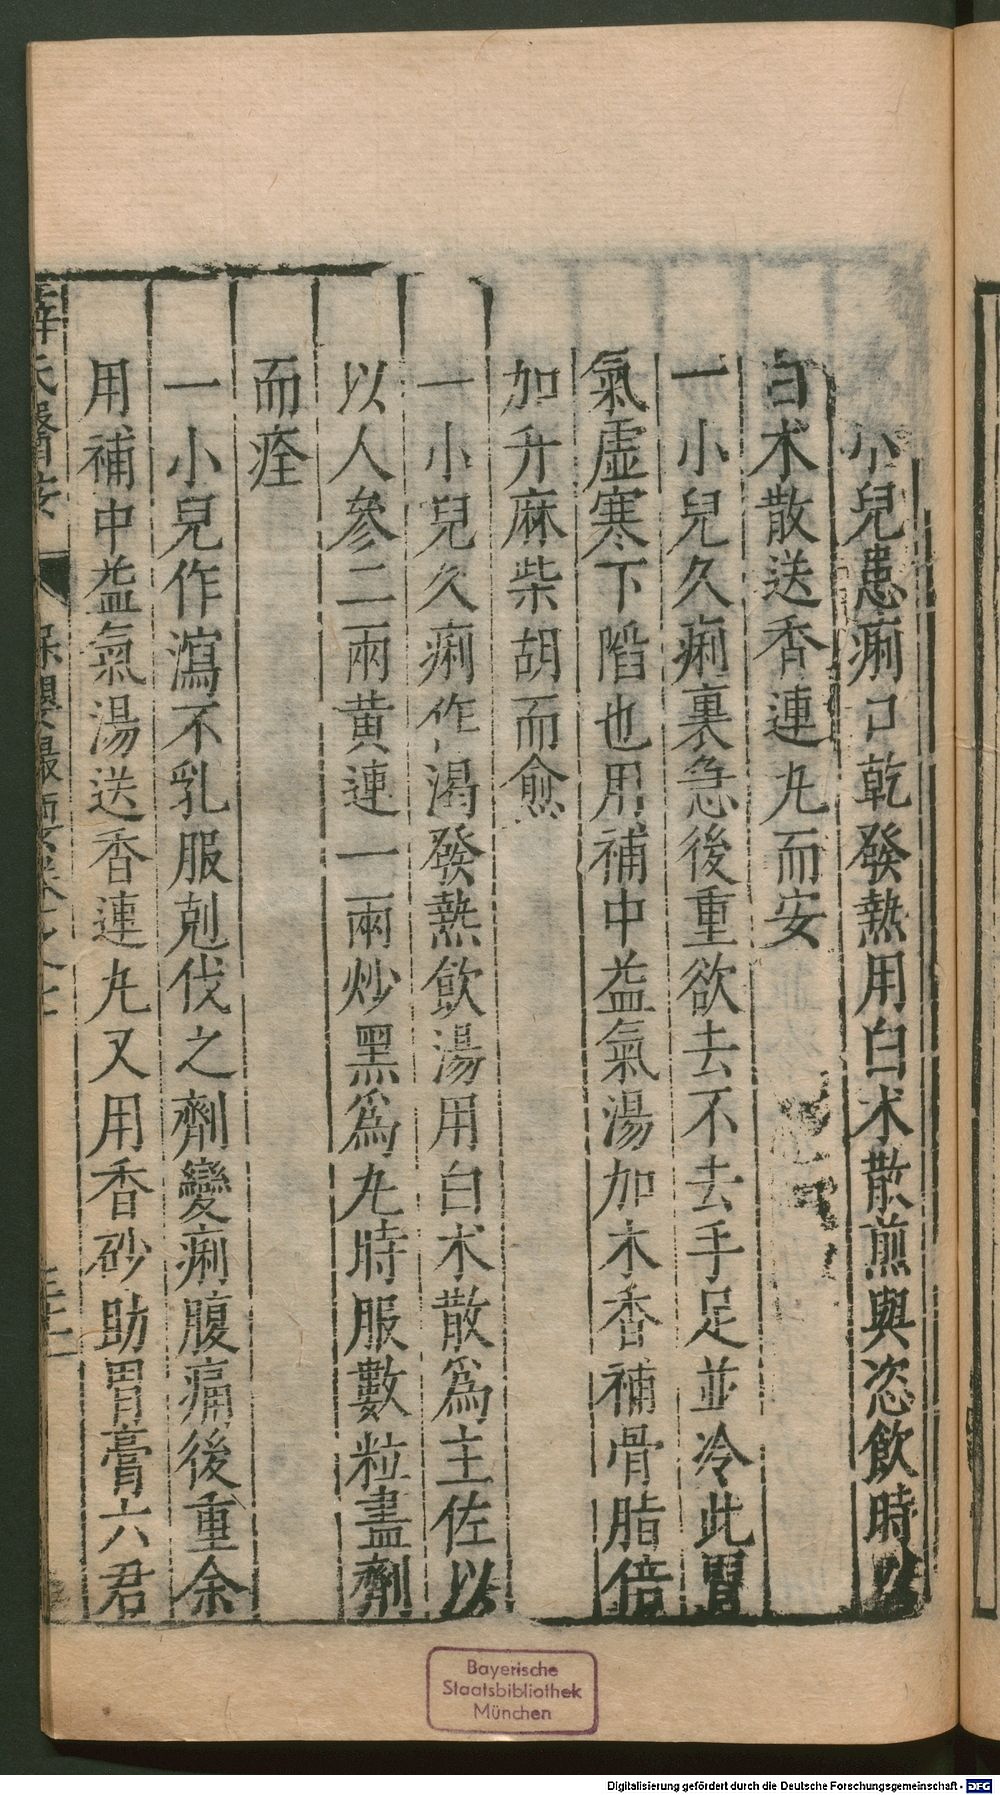 小兒患痢口乾發熱用白朮散煎與恣飲時以
白朮散送香連丸而安
一小兒久痢裏急後重欲去不去手足並冷此胃
氣虛寒下陷也用補中益氣湯加木香補骨脂倍
加升麻柴胡而愈
一小兒久痢作渴發熱飲湯用白朮散爲主佐以
以人參二兩黄連一兩炒黑爲丸時服數粒盡劑
而痊
一小兒作瀉不乳服剋伐之劑變痢腹痛後重余
用補中益氣湯送香連丸又用香砂助胃膏六君
薛氏醫按 保嬰撮要卷之七
Bayerische
Staatsbibliothek
München
Digitalisierung gefördert durch die Deutsche Forschungsgemeinschaft - DFG